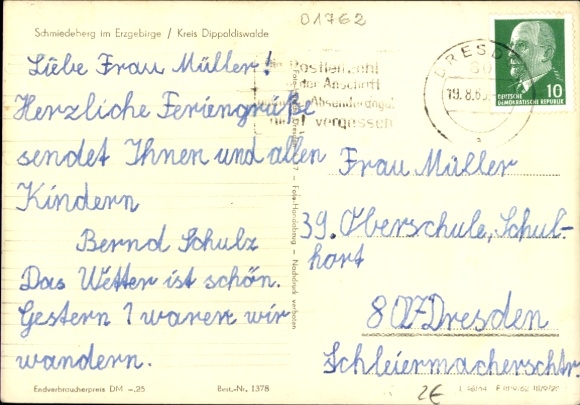 01762
Schmiedeberg im Erzgebirge / Kreis Dippoldiswalde
Liebe Frau Müller!
Herzliche Feriengrüße
sendet Ihnen und allen
Kindern
Bernd Schulz
Das Wetter ist schön.
Gestern waren wir
wandern.
Endverbraucherpreis DM -,25
Best.-Nr. 1378
Nachdruck verboten
Postleitzahl
der Anschrift
Absenderangabe
nicht vergessen
DRESDEN
19.8.65
DEUTSCHE
DEMOKRATISCHE REPUBLIK
10
Frau Müller
39. Oberschule, Schul-
hort
8027 Dresden
Schleiermacherschtr.
2€